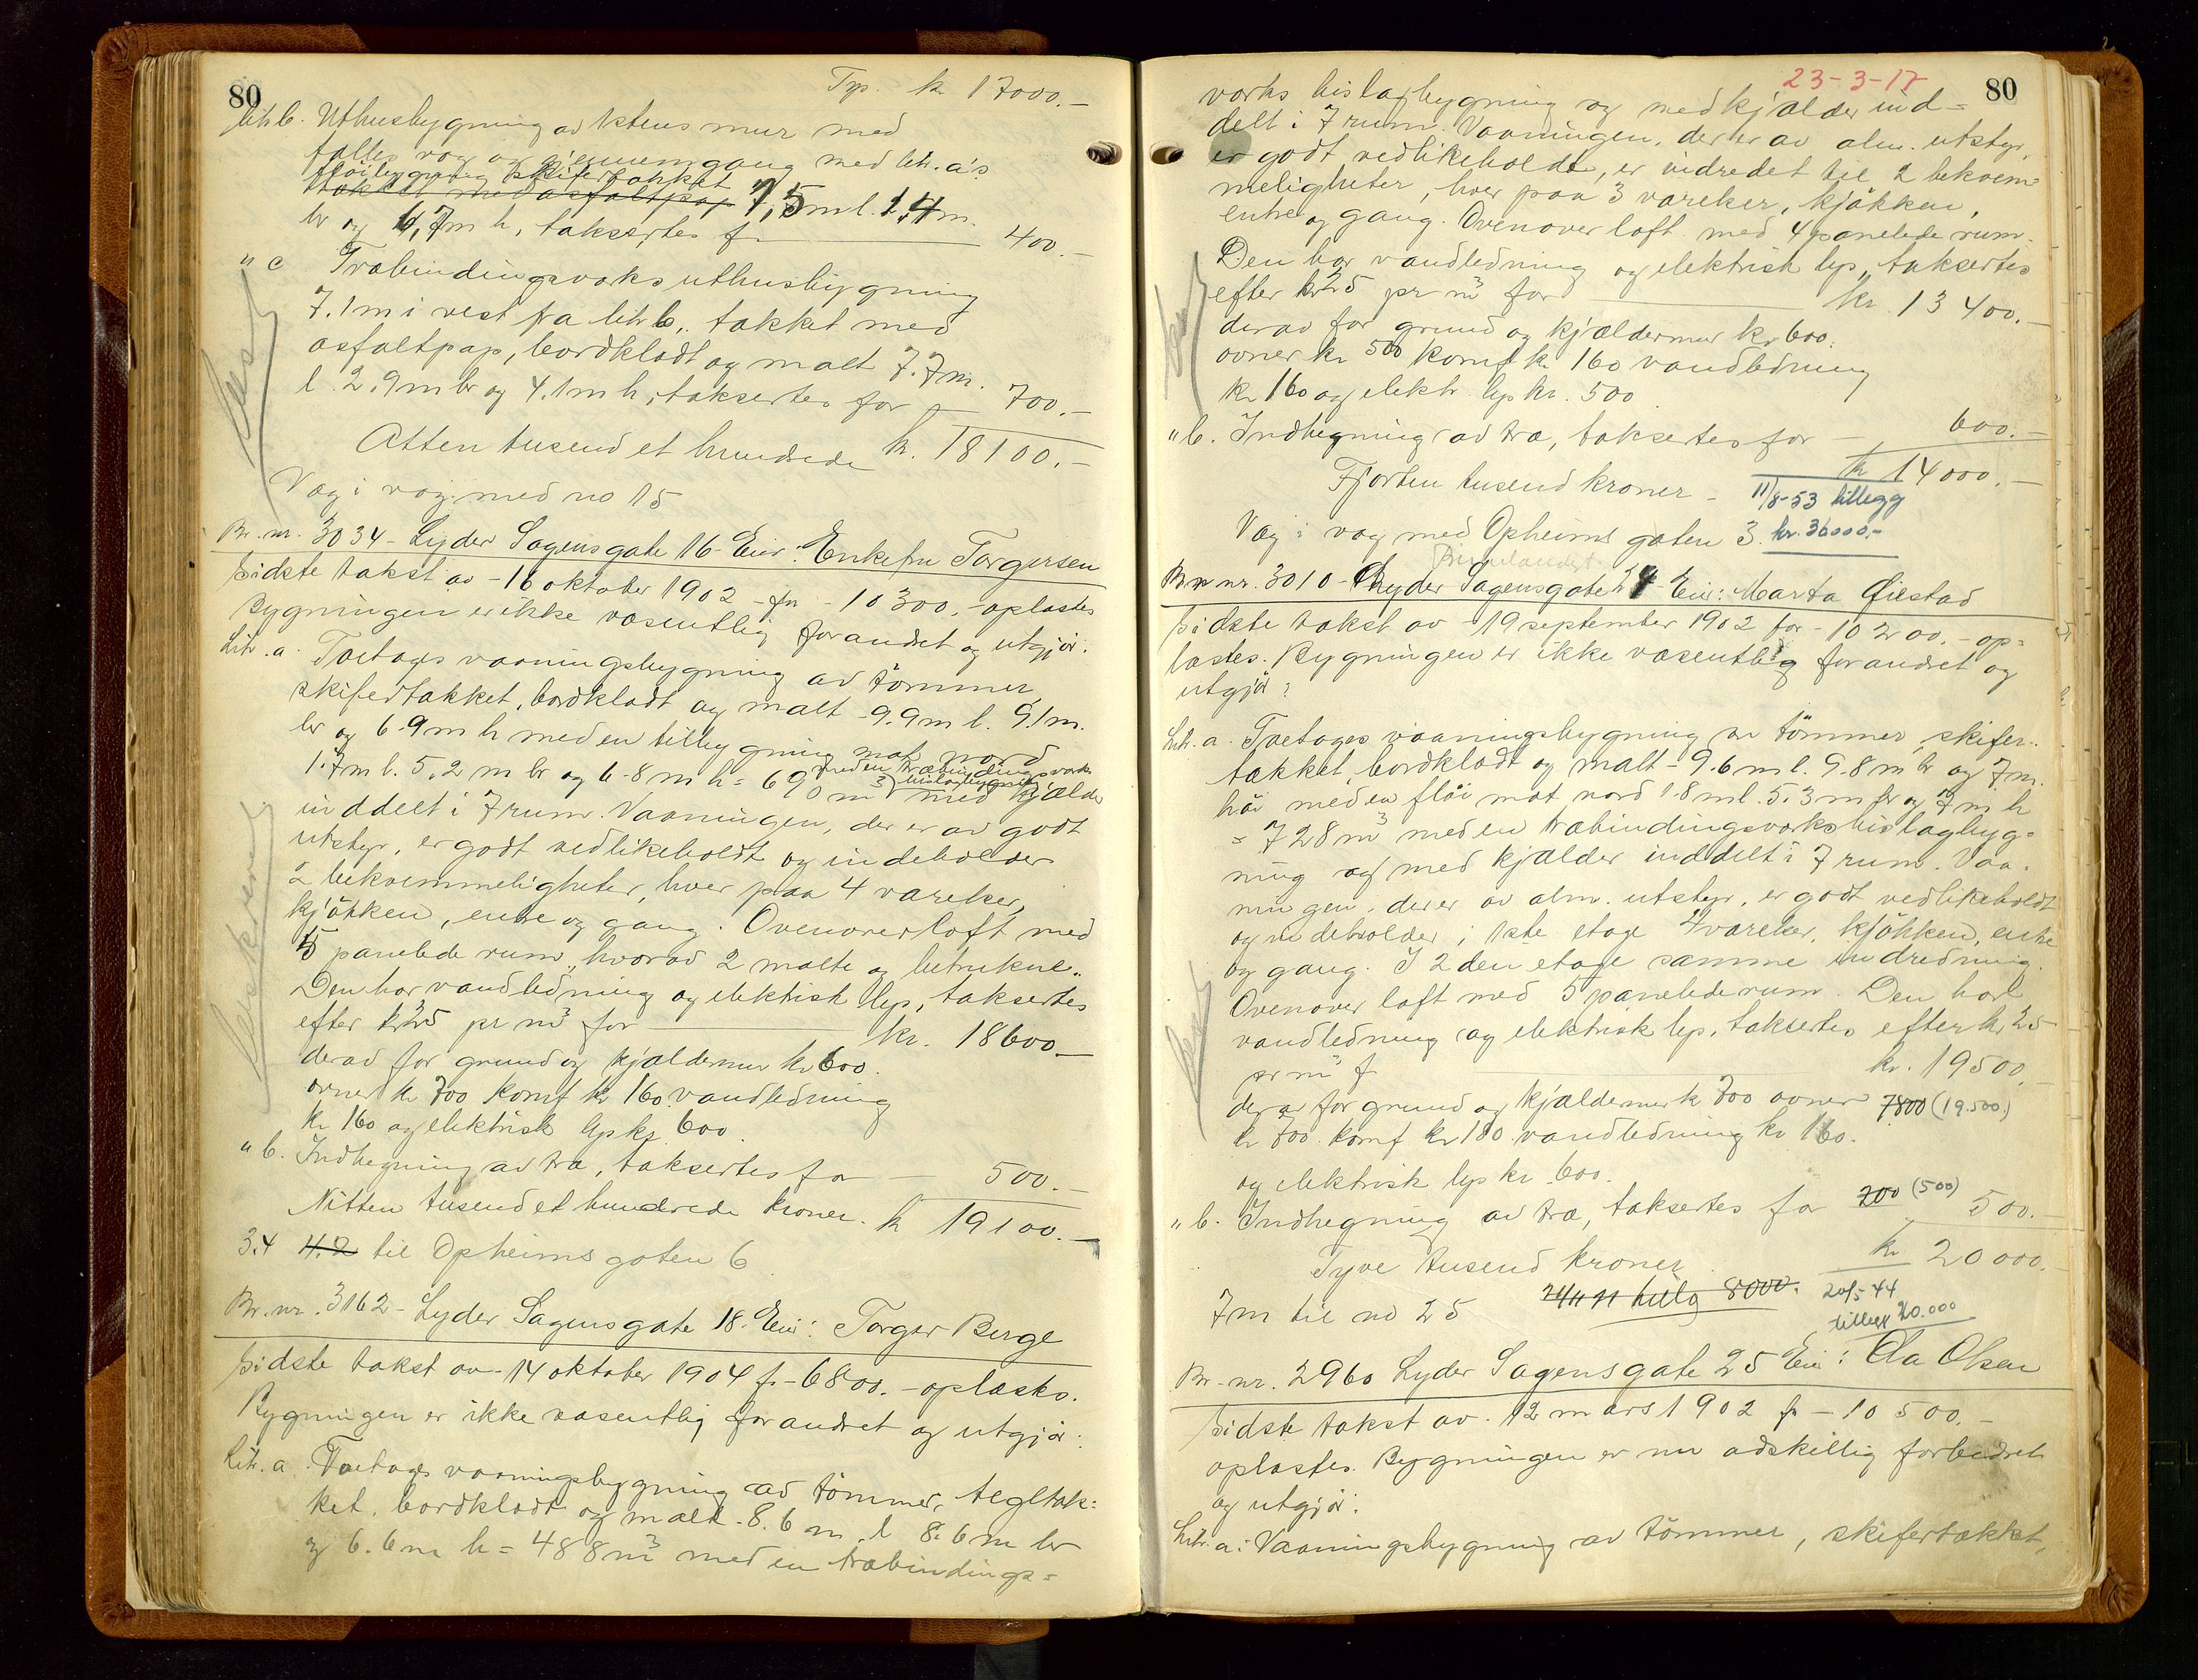 80
Tp. kr 17000.-
Litr b. Uthusbygning av 1stens mur med
fælles væg og gjennemgang med litr. a's
fløibygning skifertækket
tækket med asfaltpap 7,5 m l. 2,4 m.
br og 6,7 m h, taksertes for 400.-
" c Træbindingsværks uthusbygning
7.1 m i vest fra litr b, tækket med
asfaltpap, bordklædt og malt 7.7 m.
l. 2.9 m br og 4.1 m h, taksertes for 700.-
Atten tusend et hundrede kr. 18100.-
Væg i væg med no 15
Br. nr. 3034 - Lyder Sagensgate 16 - Eier: Enkefru Torgersen
Sidste takst av - 16 oktober 1902 - for - 10300. - oplæstes
Bygningen er ikke væsentlig forandret og utgjør:
Litr. a. Toetages vaaningsbygning av tømmer
skifertækket, bordklædt og malt - 9.9 m l. 9.1 m.
br og 6.9 m h med en tilbygning mot nord
1.7 m l. 5.2 m br og 6.8 m h = 690 m3 med en træbindingsværks bislagbygning med kjælder
inddelt i 7 rum. Vaaningen, der er av godt
utstyr, er godt vedlikeholdt og indeholder
2 bekvemmeligheter, hver paa 4 værelser,
kjøkken, entre og gang. Ovenover loft med
5 panelede rum, hvorav 2 malte og betrukne.
Den har vandledning og elektrisk lys, taksertes
efter kr 25 pr m3 for kr. 18600.-
derav for grund og kjældermur kr 600.
ovner kr 700 komf kr 160 vandledning
kr 160 og elektrisk lys kr. 600.
" b. Indhegning av træ, taksertes for - 500.-
Nitten tusend et hundrede kroner. kr 19100.-
3.4 4.2 til Opheims gaten 6
Br. nr. 3162 - Lyder Sagensgate 18. Eier: Torger Berge
Sidste takst av - 14 oktober 1904 for - 6800. - oplæstes.
Bygningen er ikke væsentlig forandret og utgjør:
Litr. a. Toetages vaaningsbygning av tømmer, tegltæk=
ket, bordklædt og malt - 8.6 m l 8.6 m br
og 6.6 m h = 488 m3 med en træbindings=
23-3-17
80
værks bislagbygning og med kjælder ind=
delt i 7 rum. Vaaningen, der er av alm. utstyr,
er godt vedlikeholdt, er indredet til 2 bekvem=
meligheter, hver paa 3 værelser, kjøkken,
entre og gang. Ovenover loft med 4 panelede rum.
Den har vandledning og elektrisk lys, taksertes
efter kr 25 pr m3 for kr. 13400.-
derav for grund og kjældermur kr 600.
ovner kr 500 komf kr 160 vandledning
kr 160 og elektr. lys kr. 500
" b. Indhegning av træ, taksertes for - 600.-
kr 14000.-
Fjorten tusend kroner -
11/8-53 tillegg
kr. 36000.-
Væg i væg med Opheims gaten 3.
Br. nr. 3010 - Lyder Sagensgate 24 Eier: Marta Øiestad
Sidste takst av - 19 september 1902 for - 10200. - op=
læstes. Bygningen er ikke væsentlig forandret og
utgjør:
Litr. a. Toetages vaaningsbygning av tømmer, skifer=
tækket, bordklædt og malt - 9.6 m l. 9.8 m br og 7 m.
høi med en fløi mot nord 1.8 m l. 5.3 m br og 7 m h
= 728 m3 med en træbindingsværks bislagbyg=
ning og med kjælder inddelt i 7 rum. Vaa=
ningen, der er av alm. utstyr, er godt vedlikeholdt
og indeholder i 1ste etage 4 værelser, kjøkken, entre
og gang. I 2den etage samme indredning.
Ovenover loft med 5 panelede rum. Den har
vandledning og elektrisk lys, taksertes efter kr 25
pr m3 for kr. 19500.-
derav for grund og kjældermur kr 700 ovner 7800 (19.500)
kr 700. komf kr 180 vandledning kr 160.
og elektrisk lys kr 600.
" b. Indhegning av træ, taksertes for 200 (500) 500.-
Tyve tusend kroner kr 20000.-
7 m til no 25 8000. 20/5 44
tillegg 20.000
Br. nr. 2960 Lyder Sagensgate 25 Eier: Ola Olsen
Sidste takst av - 12 mars 1902 for - 10500. -
oplæstes. Bygningen er nu adskillig forbedret
og utgjør:
Litr. a. Vaaningsbygning av tømmer, skifertækket,